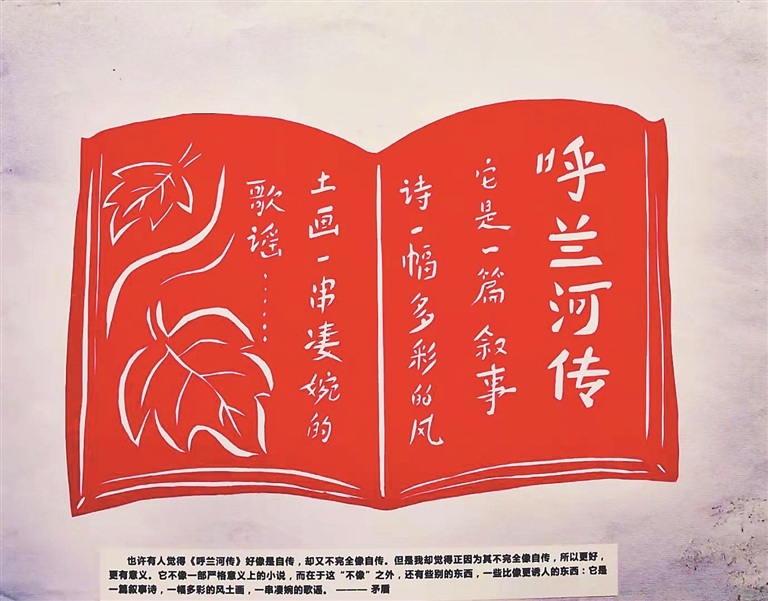 呼兰河传
它是一篇叙事
诗一幅多彩的风
土画一串凄婉的
歌谣……
也许有人觉得《呼兰河传》好像是自传，却又不完全像自传。但是我却觉得正因为其不完全像自传，所以更好，
更有意义。它不像一部严格意义上的小说，而在于这“不像”之外，还有些别的东西，一些比像更诱人的东西：它是
一篇叙事诗，一幅多彩的风土画，一串凄婉的歌谣。——— 茅盾